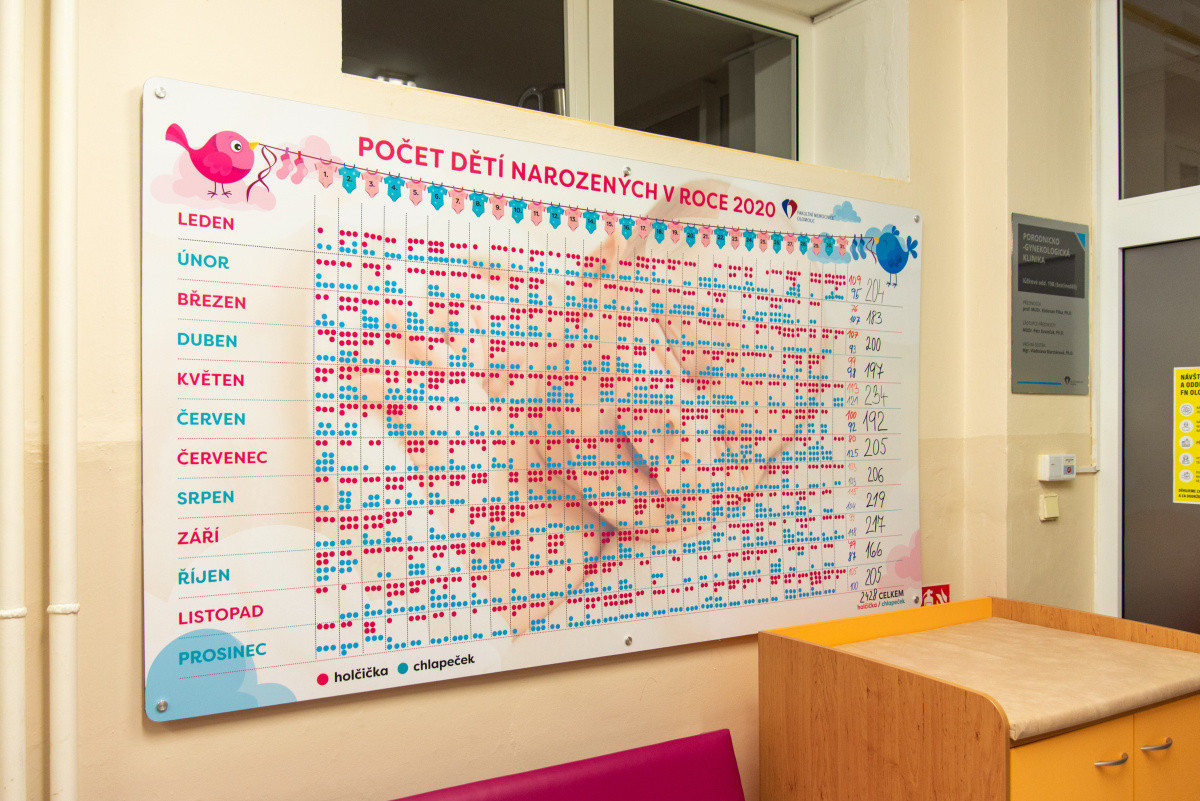 POČET DĚTÍ NAROZENÝCH V ROCE 2020
FAKULTNÍ NEMOCNICE
OLOMOUC
1. 2. 3. 4. 5. 6. 7. 8. 9. 10. 11. 12. 13. 15. 16. 17. 18. 19. 20. 21. 22. 23. 24. 25. 26. 27. 28. 29. 30. 31.
LEDEN
109
95
204
ÚNOR
76
107
183
BŘEZEN
107
93
200
DUBEN
99
98
197
KVĚTEN
113
121
234
ČERVEN
100
92
192
ČERVENEC
80
125
205
SRPEN
206
ZÁŘÍ
219
ŘÍJEN
217
LISTOPAD
79
87
166
PROSINEC
105
100
205
2428 CELKEM
holčička / chlapeček
holčička chlapeček
PORODNICKO
-GYNEKOLOGICKÁ
KLINIKA
NÁVŠT
A ODDĚ
FN OLO